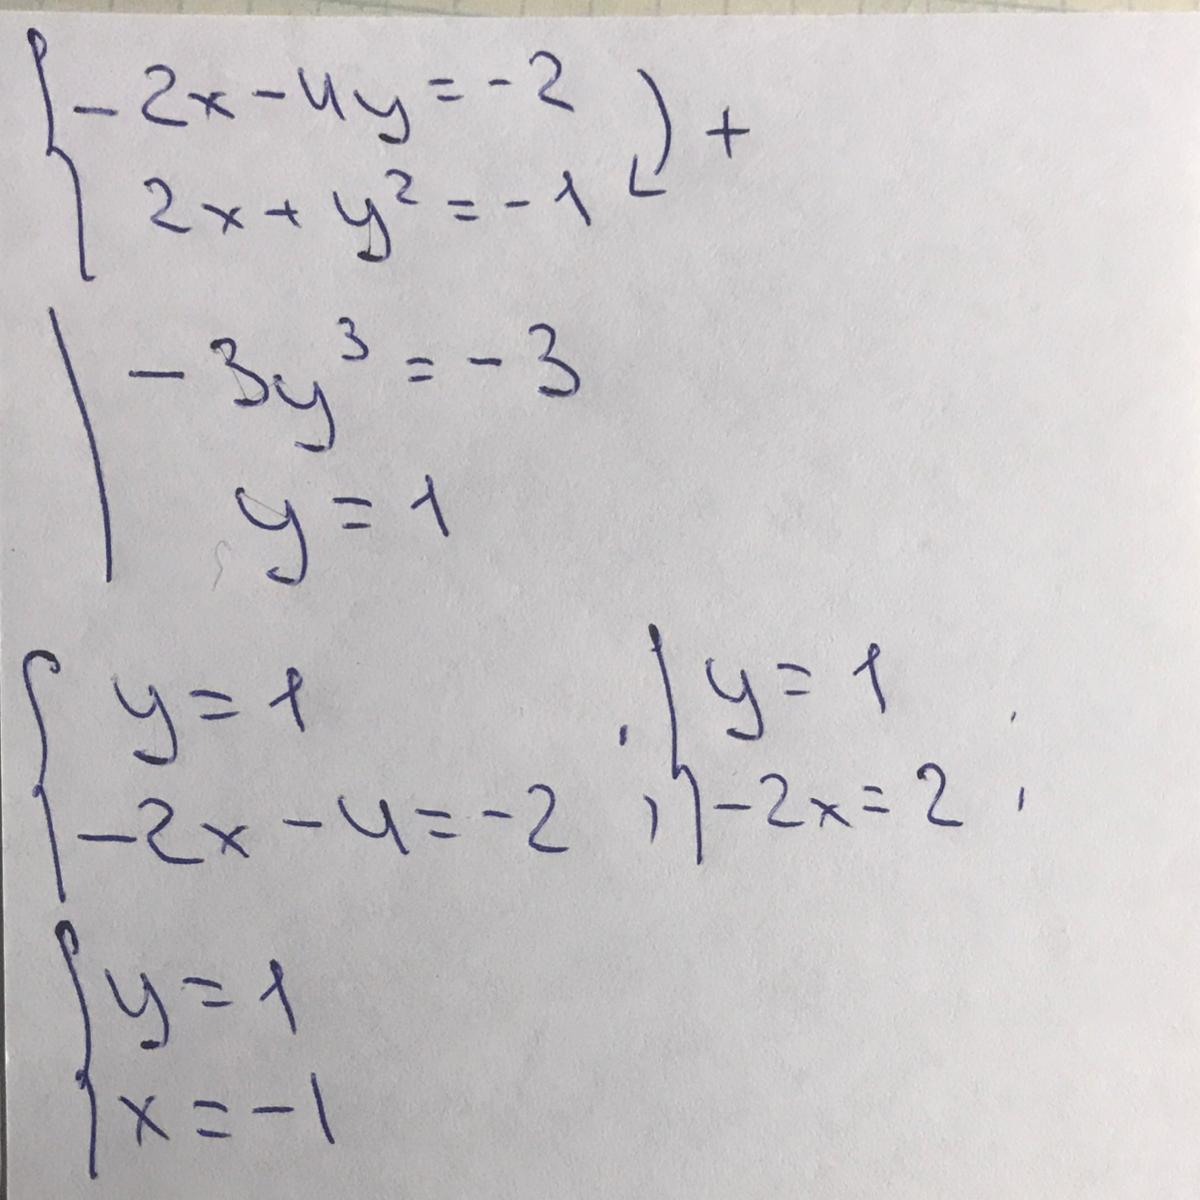 -2x-4y=-2
2x+y²=-1 +
-3y³=-3
y=1
y=1
-2x-4=-2 ;
y=1
-2x=2 ;
y=1
x=-1